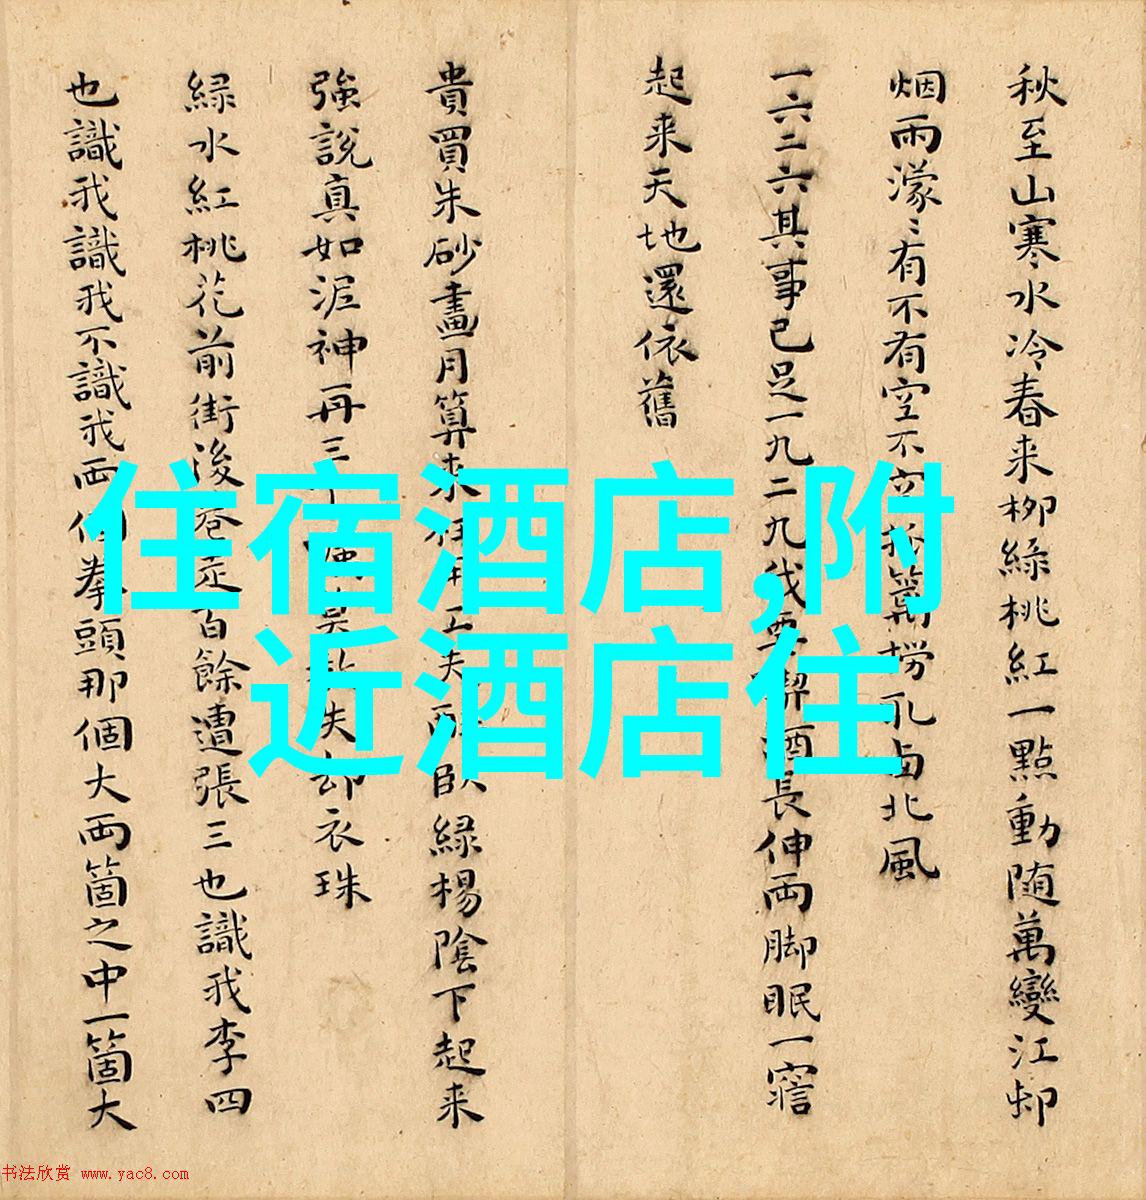 秋至山寒水冷春来柳緑桃紅一點動随萬變江邨
烟雨濛〻有不有空不空
北風
一六二六其事已足一九二九我要
酒長伸両脚眠一寤
起来天地還依舊
貴買朱砂畫月算来枉用工夫醉臥緑楊陰下起来
強説真如泥神再三
失却衣珠
緑水紅桃花前街後巷走百餘遭張三也識我李四
也識我識我不識我両個拳頭那個大両箇之中一箇大
住宿酒店,附
近酒店住
书法欣赏 www.yac8.com